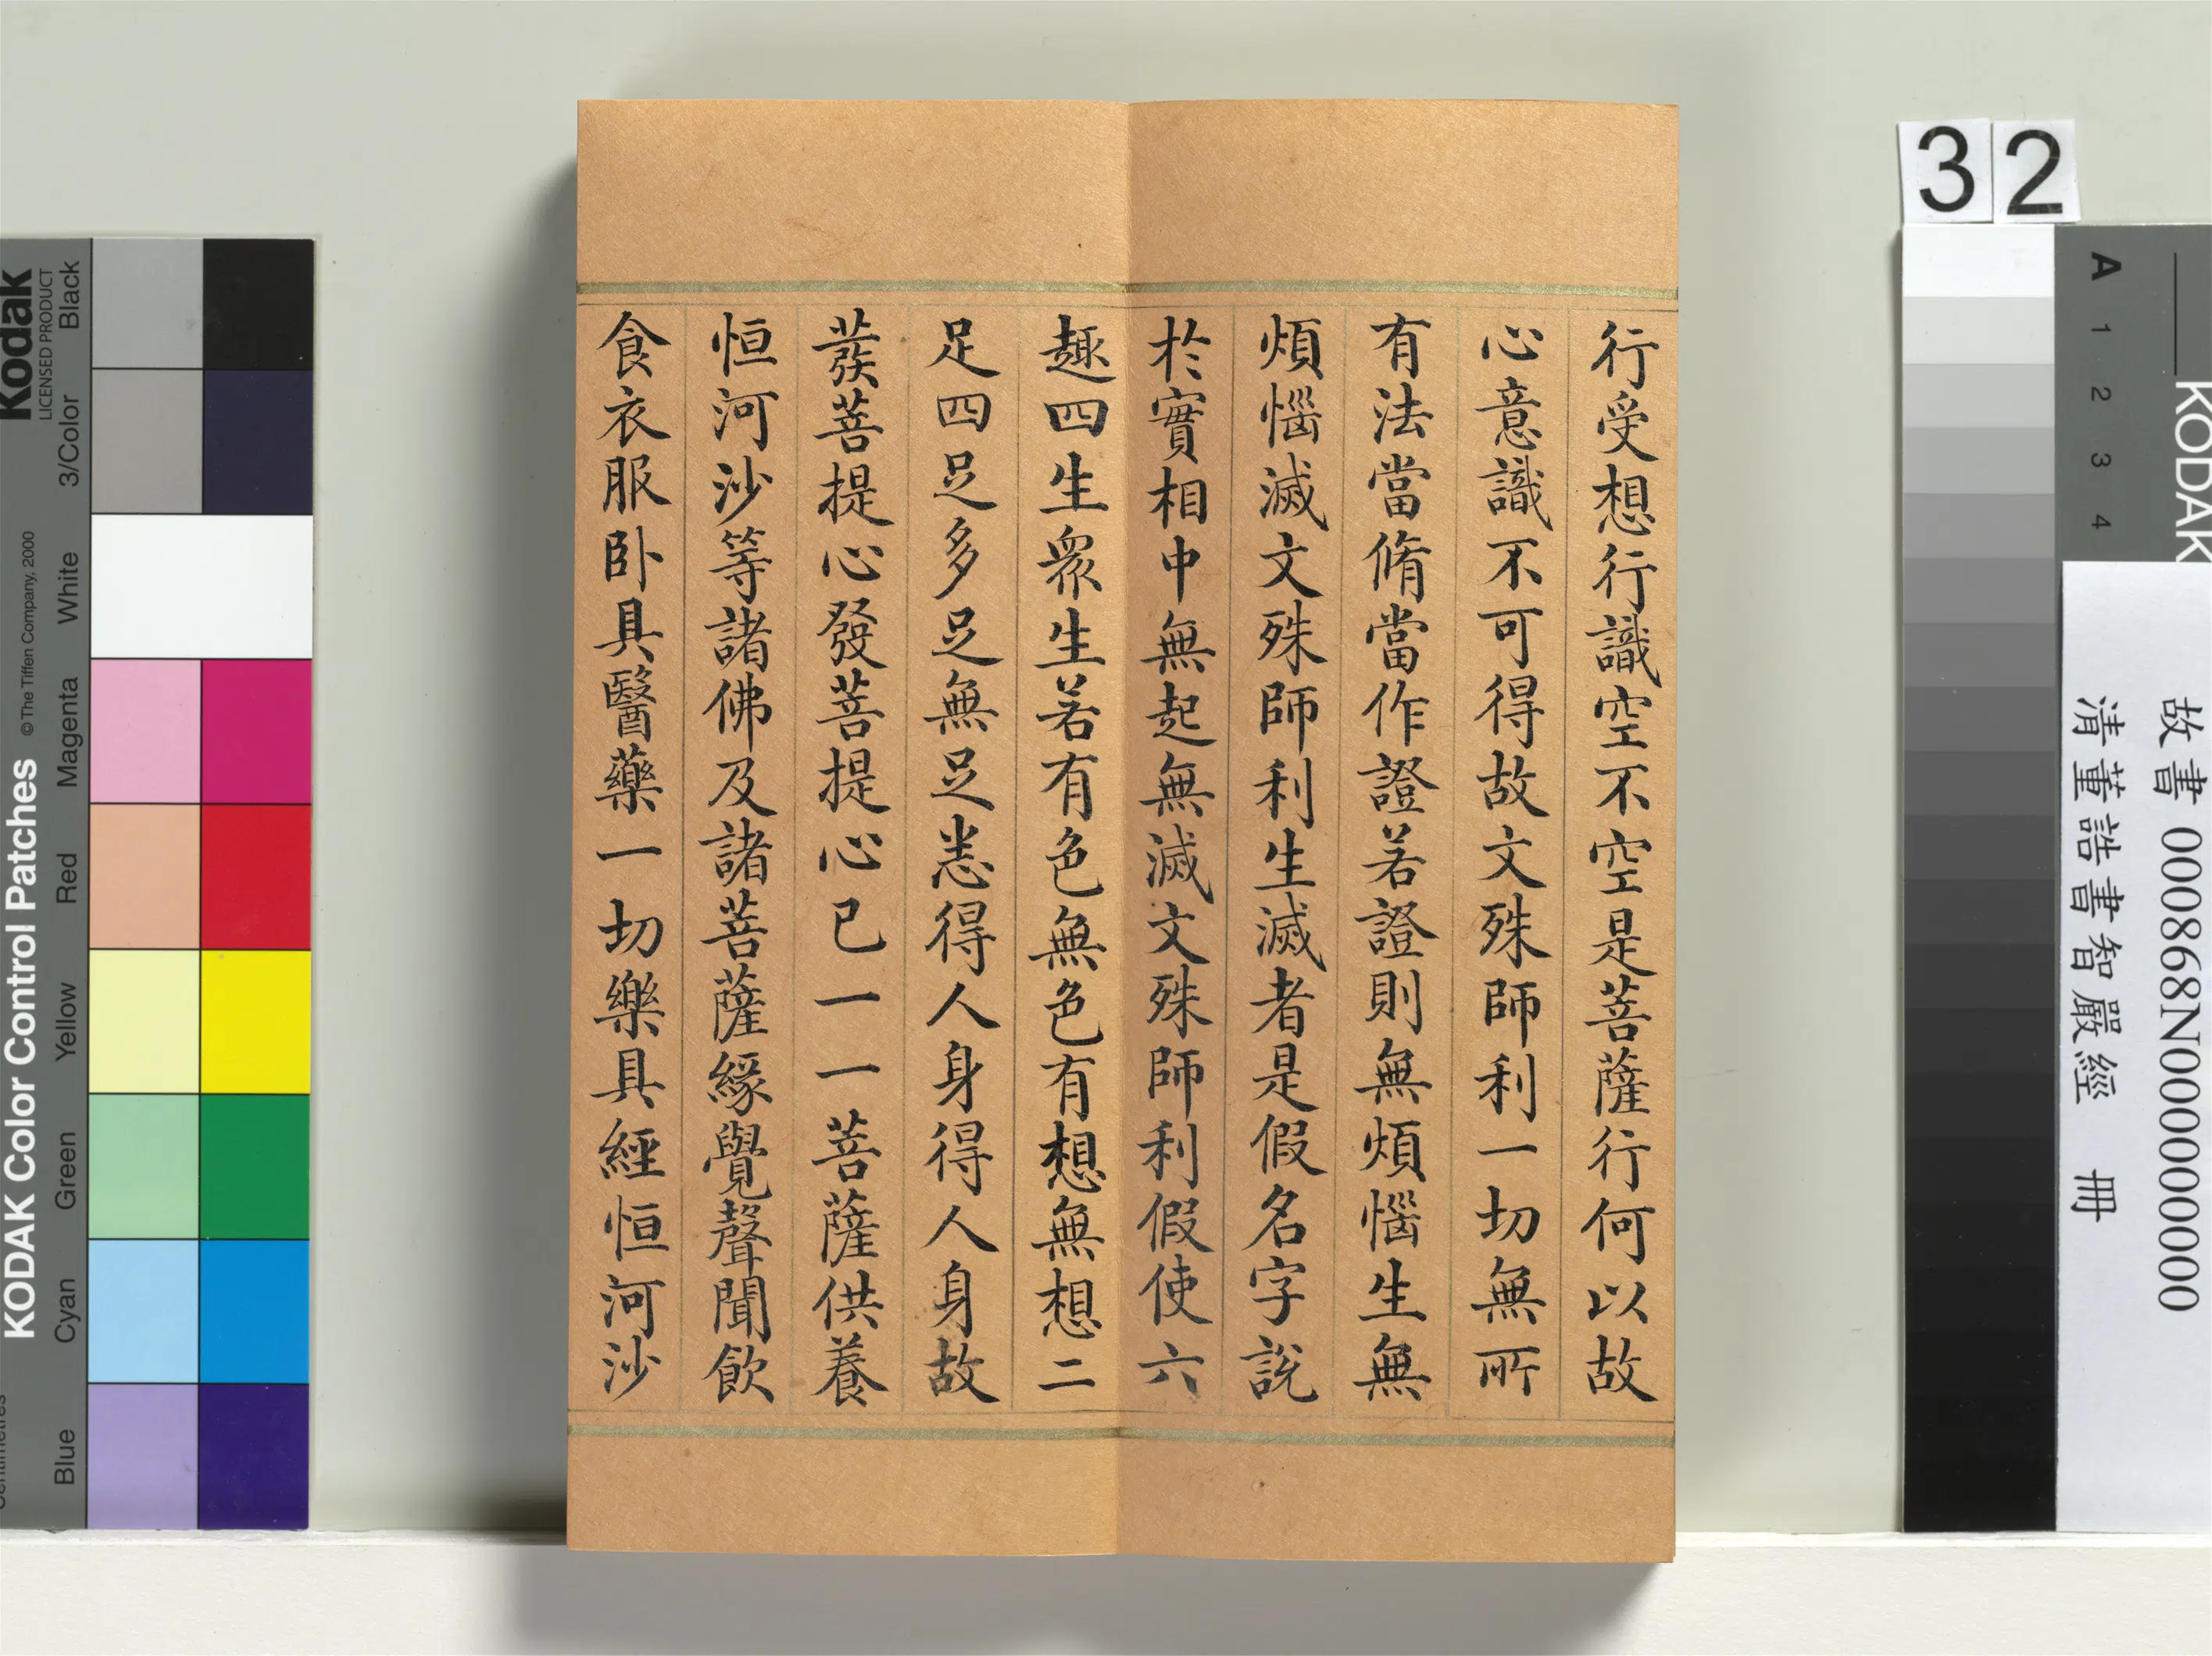 行受想行識空不空是菩薩行何以故
心意識不可得故文殊師利一切無所
有法當脩當作證若證則無煩惱生無
煩惱滅文殊師利生滅者是假名字說
於實相中無起無滅文殊師利假使六
趣四生衆生若有色無色有想無想二
足四足多足無足悉得人身得人身故
發菩提心發菩提心已一一菩薩供養
恒河沙等諸佛及諸菩薩緣覺聲聞飲
食衣服卧具醫藥一切樂具經恒河沙
32
KODAK
A 1 2 3 4
故書 000868N000000000
清董誥書智嚴經 冊
Kodak
LICENSED PRODUCT
KODAK Color Control Patches
©The Tiffen Company, 2000
Blue Cyan Green Yellow Red Magenta White 3/Color Black